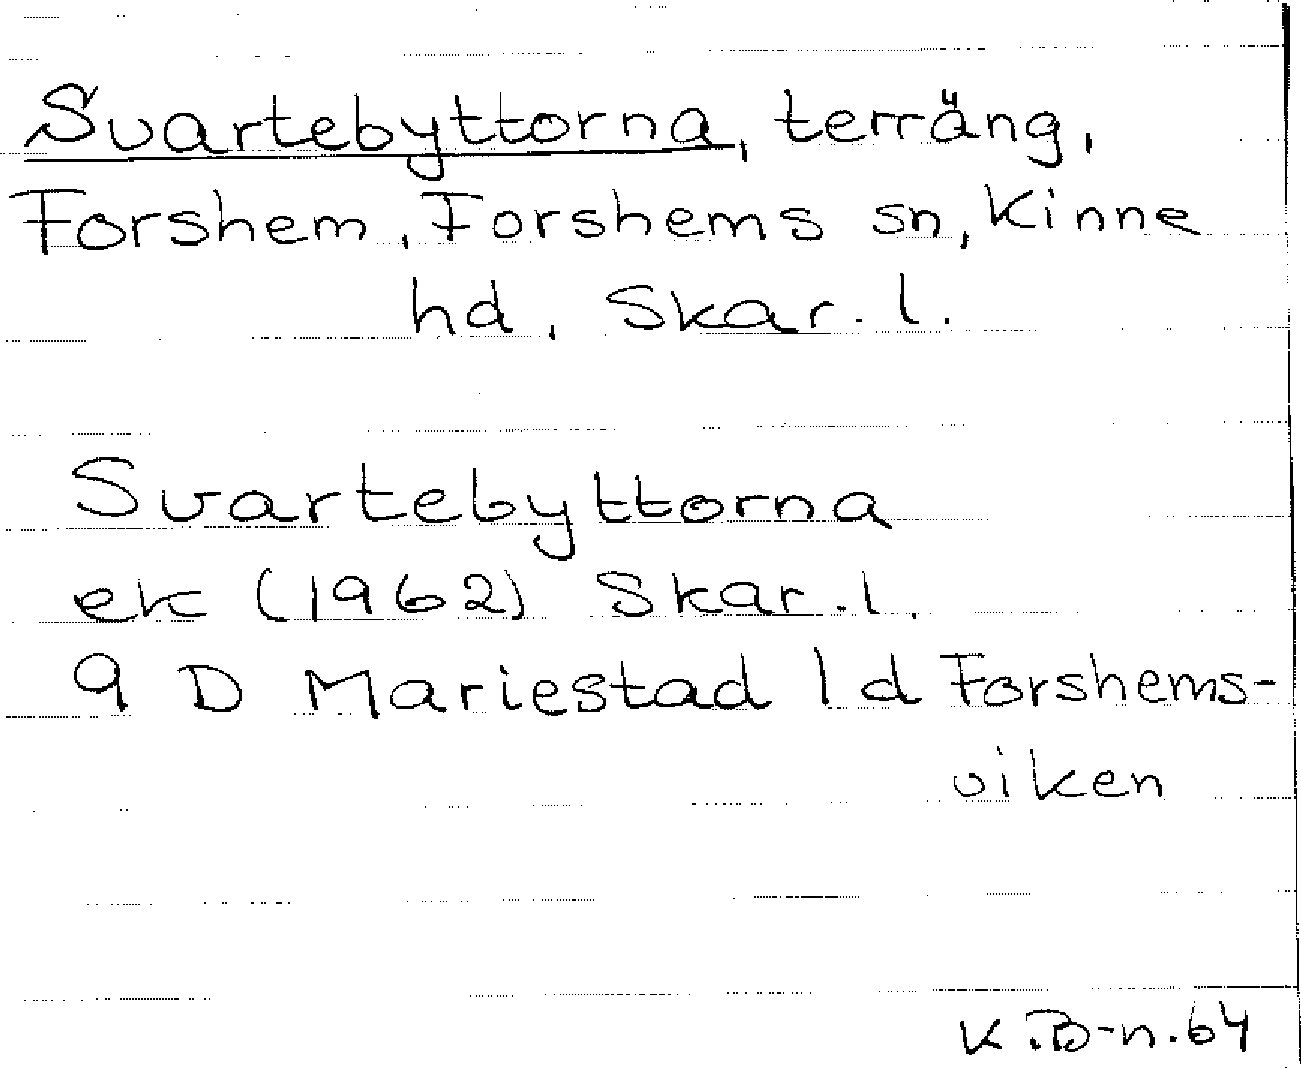 Svartebyttorna, terräng,
Forshem, Forshems sn, Kinne
hd, Skar. l.
Svartebyttorna
ek (1962) Skar. l.
9 D Mariestad 1 d Forshems-
viken
K.B-n. 64